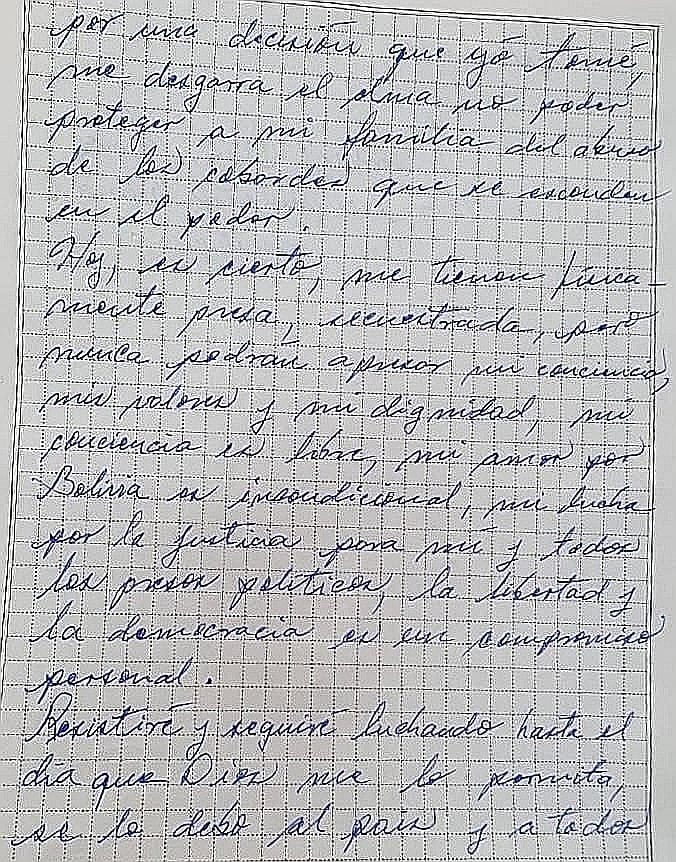 por una decisión que yó tomé,
me desgarra el alma no poder
proteger a mi familia del abuso
de los cobardes que se esconden
en el poder.
Hoy, es cierto, me tienen física-
mente presa, secuestrada, pero
nunca podrán apresar mi conciencia,
mis valores y mi dignidad, mi
conciencia es libre, mi amor por
Bolivia es incondicional, mi lucha
por la justicia para mí y todos
los presos políticos, la libertad y
la democracia es un compromiso
personal.
Resistiré y seguiré luchando hasta el
día que Dios me lo permita,
se lo debo al país y a todos